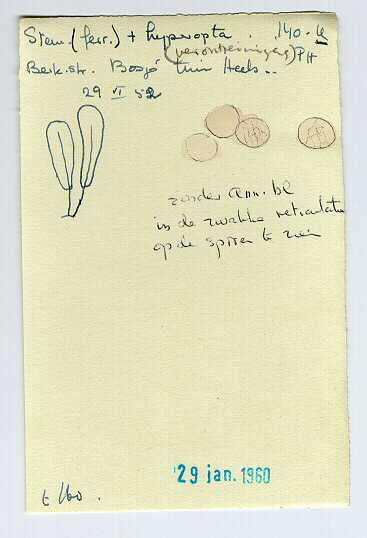 Stem. (ferr.) + hyperopta . . 140.
(verontreinigen) PH
Berk. str. Bosjé tuin Heels..
29 VI 52
zonder Ann. bl
is de zwakke reticulatie
op de sporen te zien
29 jan. 1960